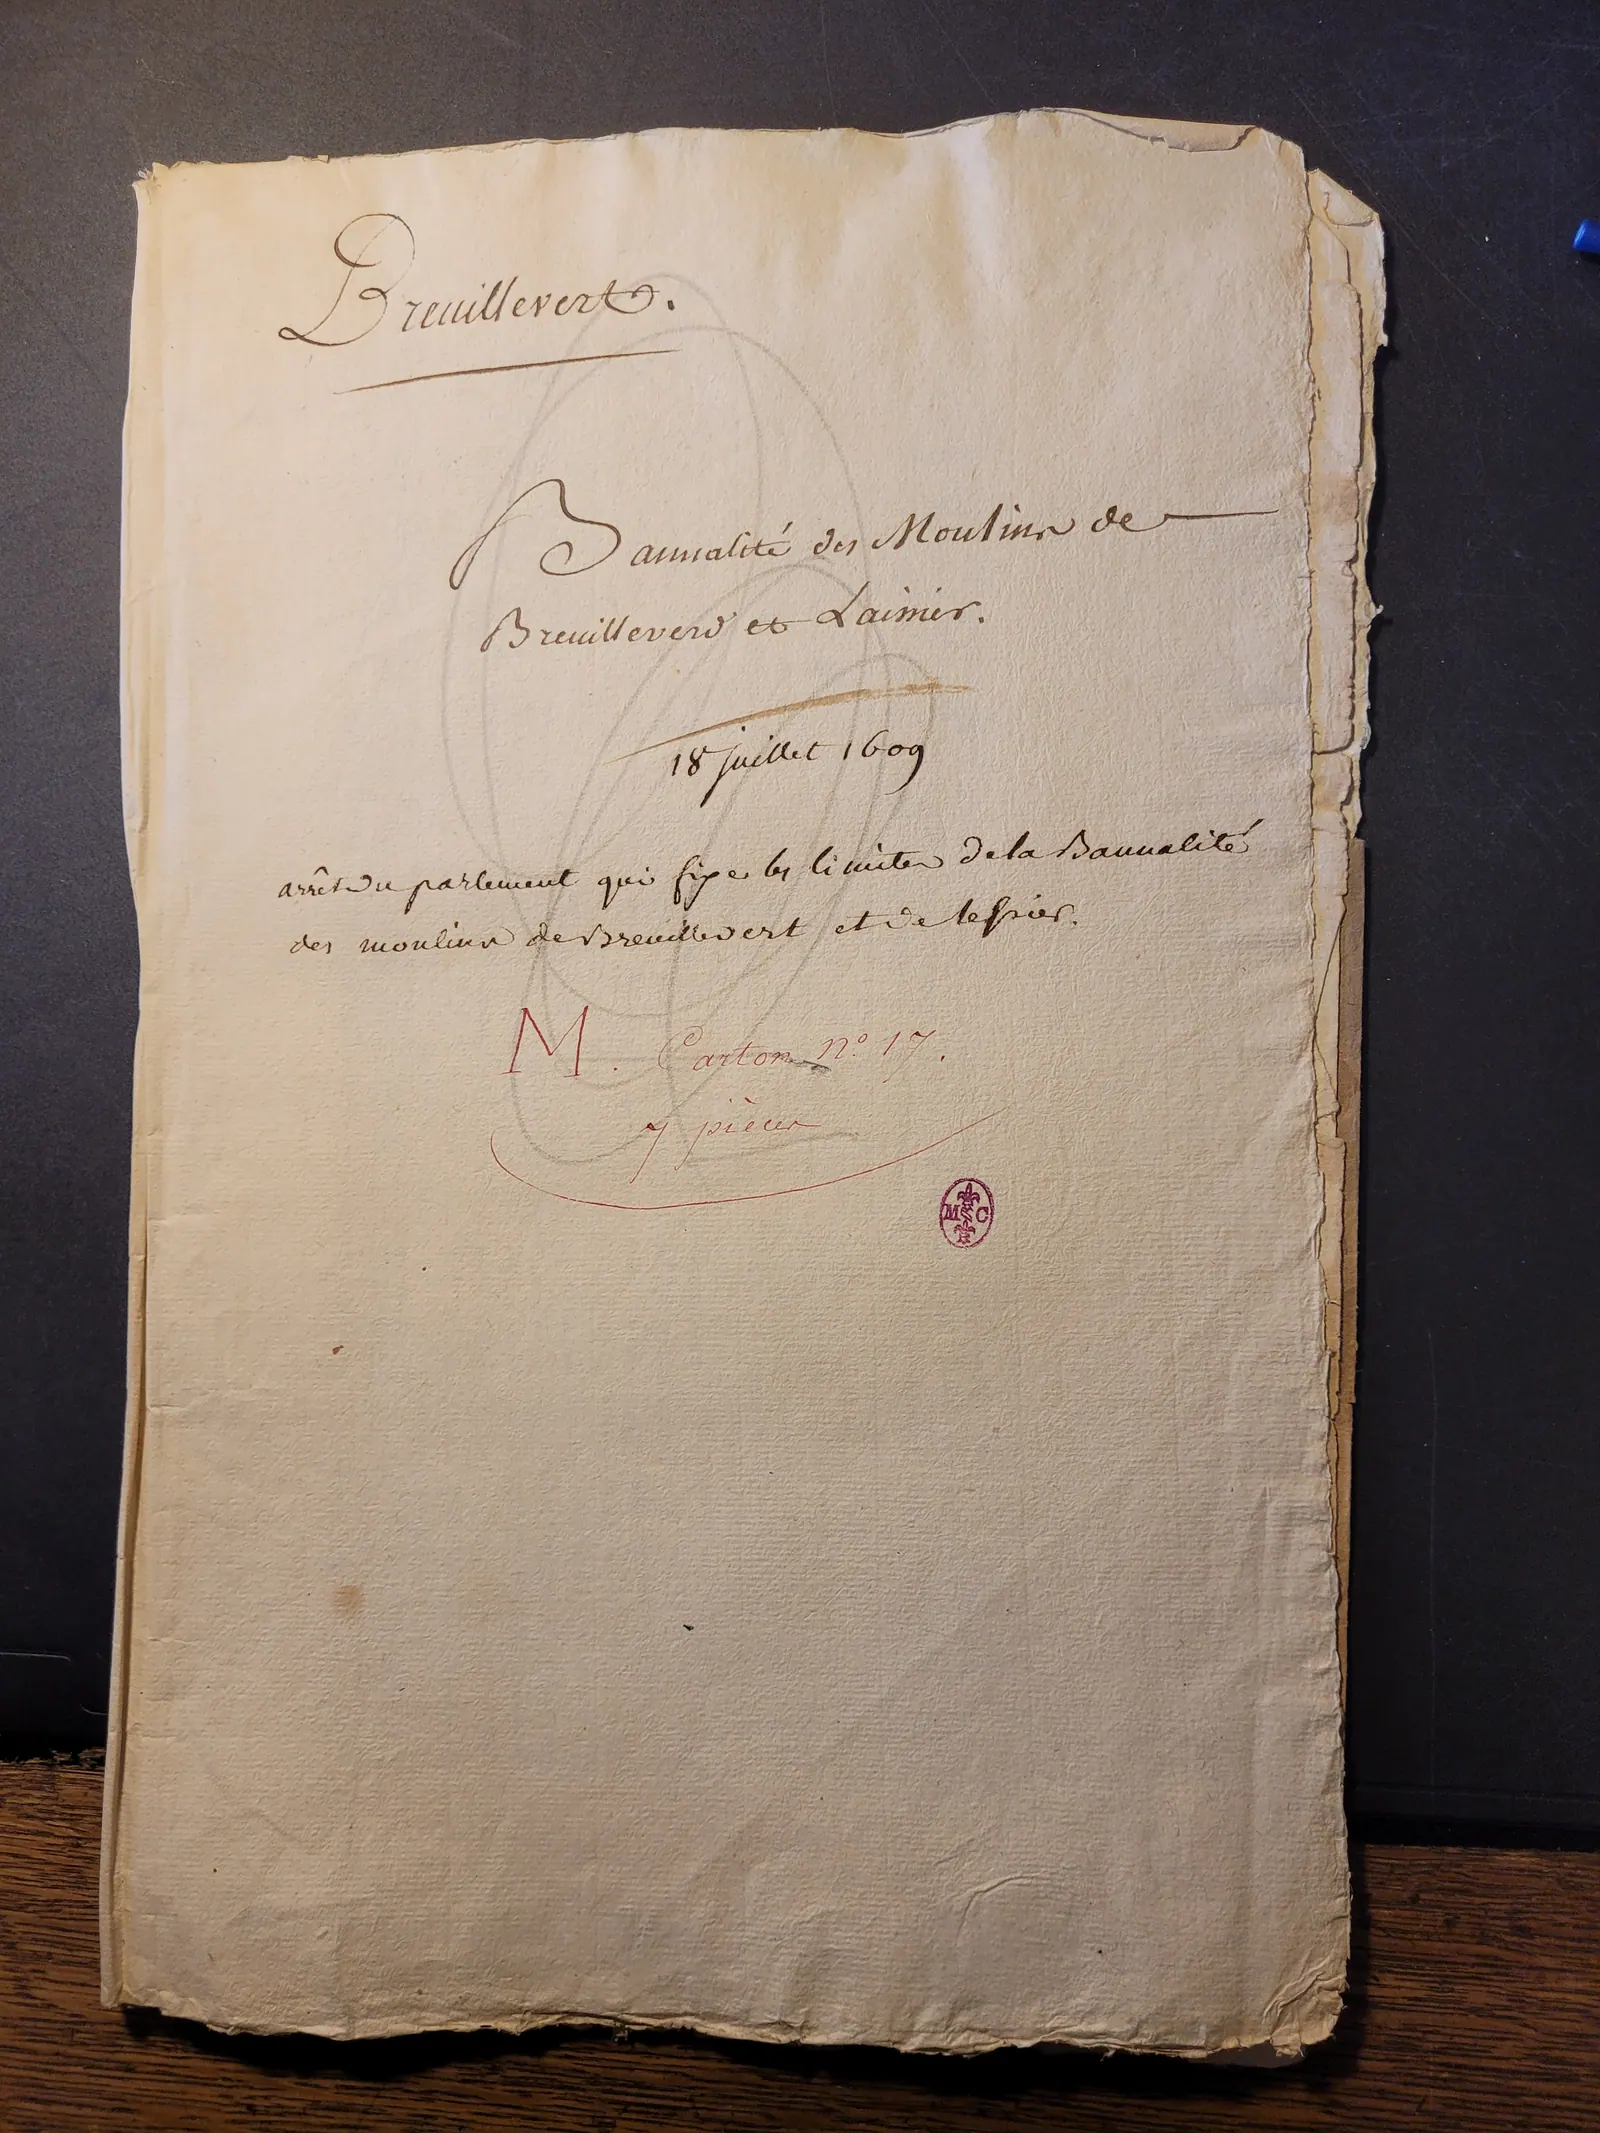 Breuillevert.
Bannalité des Moulins de
Breuilleverd et Laimer.
18 juillet 1609
arrêt du parlement qui fixe les limites de la Bannalité
des moulins de Breuillevert et de
M. Carton nº 17.
7 pièces
M C